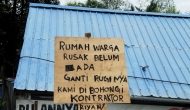 RUMAH WARGA
RUSAK BELUM
ADA
GANTI RUGI NYA
KAMI DI BOHONGI
KONTRAKTOR